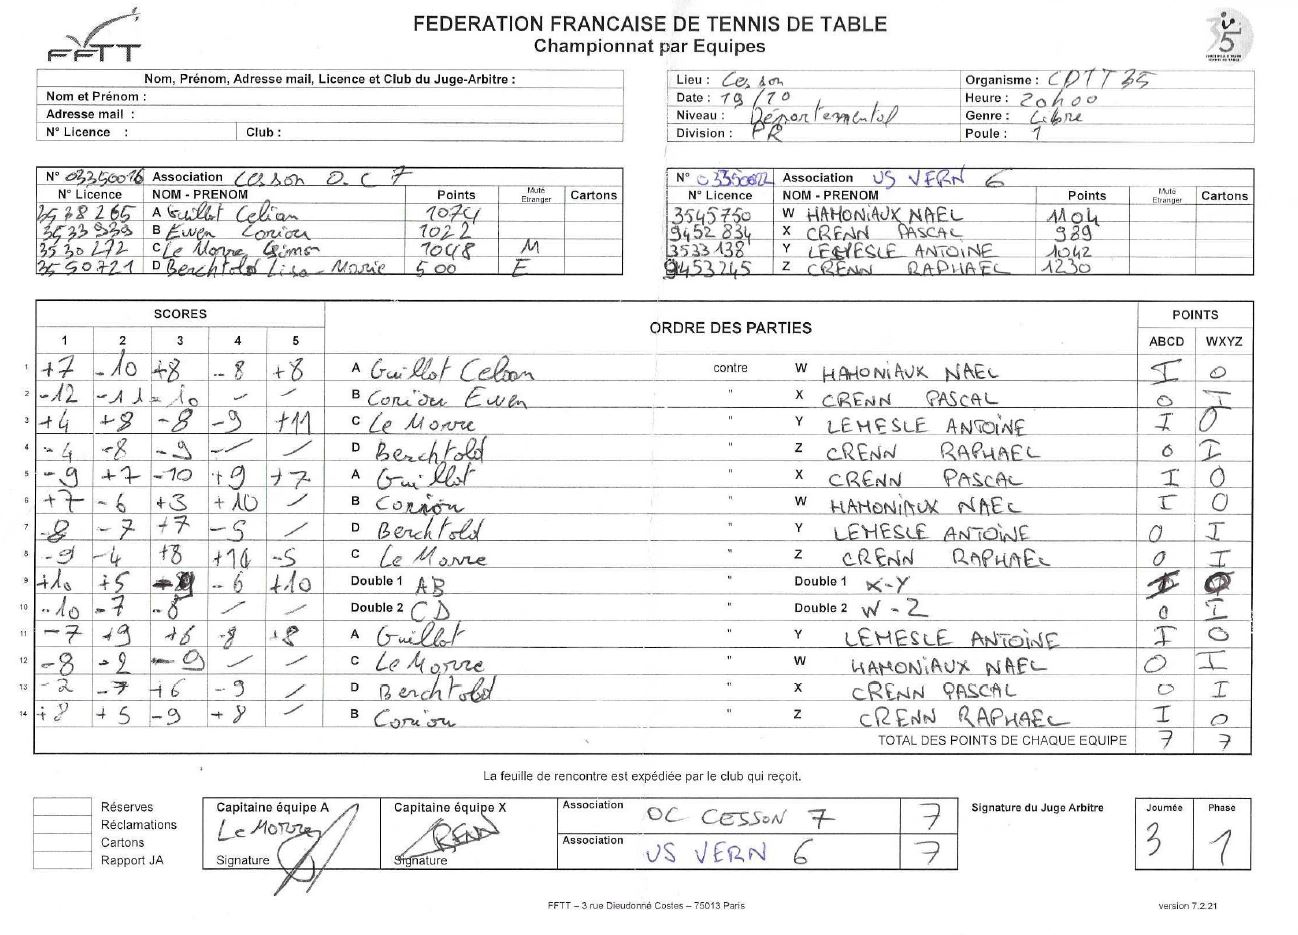 FEDERATION FRANCAISE DE TENNIS DE TABLE
Championnat par Equipes
FFTT
Nom, Prénom, Adresse mail, Licence et Club du Juge-Arbitre :
Nom et Prénom :
Adresse mail :
N° Licence : Club :
Lieu : Cesson Organisme : CDTT 35
Date : 19/10 Heure : 20h00
Niveau : Départemental Genre : Libre
Division : PR Poule : 1
N° 03350016 Association Cesson O.C 7
N° Licence NOM - PRENOM Points Muté Etranger Cartons
3528265 A Guillot Celian 1074
3533939 B Ewen Coriou 1022
3530272 C Le Morre Simon 1048 M
3550721 D Berchtold Lisa-Marie 500 E
N° 03350022 Association US VERN 6
N° Licence NOM - PRENOM Points Muté Etranger Cartons
3545750 W HAMONIAUX NAEL 1104
9452834 X CRENN PASCAL 989
3533138 Y LEMESLE ANTOINE 1042
9453245 Z CRENN RAPHAEL 1230
SCORES ORDRE DES PARTIES POINTS
1 2 3 4 5 ABCD WXYZ
1 +7 -10 +8 -8 +8 A Guillot Celian contre W HAMONIAUX NAEL I 0
2 -12 -11 -10 / / B Coriou Ewen " X CRENN PASCAL 0 I
3 +4 +8 -8 -9 +11 C Le Morre " Y LEMESLE ANTOINE I 0
4 -4 -8 -9 / / D Berchtold " Z CRENN RAPHAEL 0 I
5 -9 +7 -10 +9 +7 A Guillot " X CRENN PASCAL I 0
6 +7 -6 +3 +10 / B Coriou " W HAMONIAUX NAEL I 0
7 -8 -7 +7 -5 / D Berchtold " Y LEMESLE ANTOINE 0 I
8 -9 -4 +8 +11 -5 C Le Morre " Z CRENN RAPHAEL 0 I
9 +10 +5 -6 +10 Double 1 AB " Double 1 X-Y I 0
10 -10 -7 -8 / / Double 2 CD " Double 2 W-Z 0 I
11 -7 +9 +6 -8 +8 A Guillot " Y LEMESLE ANTOINE I 0
12 -8 -2 -9 / / C Le Morre " W HAMONIAUX NAEL 0 I
13 -2 -7 +6 -9 / D Berchtold " X CRENN PASCAL 0 I
14 +8 +5 -9 +8 / B Coriou " Z CRENN RAPHAEL I 0
TOTAL DES POINTS DE CHAQUE EQUIPE 7 7
La feuille de rencontre est expédiée par le club qui reçoit.
Réserves
Réclamations
Cartons
Rapport JA
Capitaine équipe A
Le Morre
Signature
Capitaine équipe X
CRENN
Signature
Association OC CESSON 7 7
Association US VERN 6 7
Signature du Juge Arbitre
Journée Phase
3 1
FFTT – 3 rue Dieudonné Costes – 75013 Paris
version 7.2.21